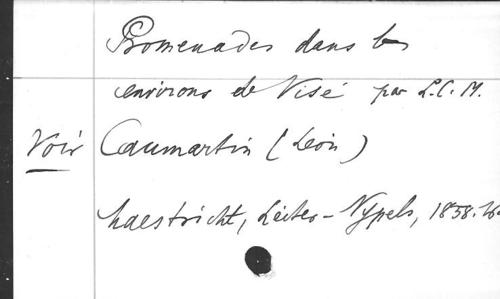 Promenades dans les
environs de Visé par L.C.M.
Voir Caumartin (Léon)
Maestricht, Leiter-Nypels, 1858.